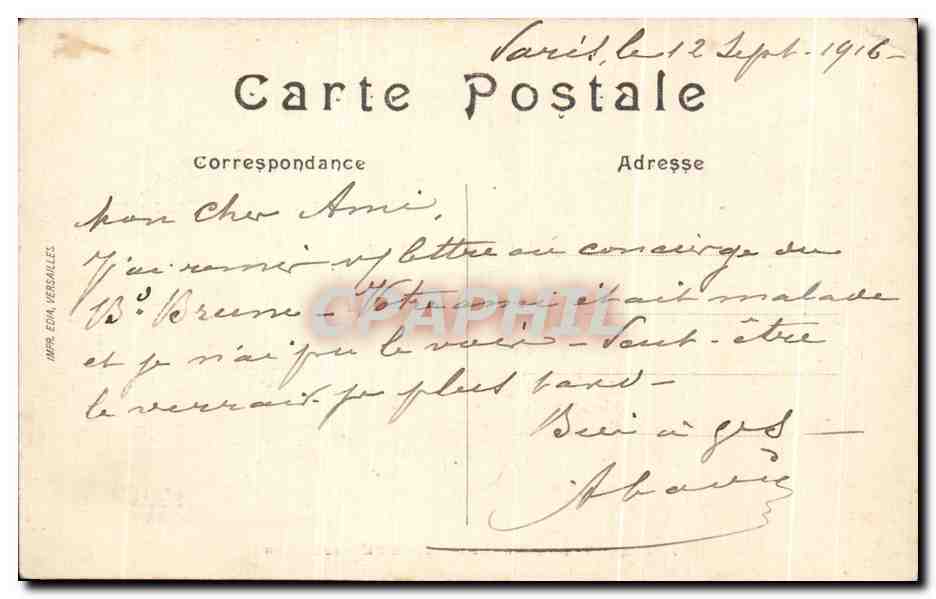 Paris, le 12 Sept. 1916 -
Carte Postale
Correspondance
Adresse
Mon cher Ami,
J'ai remis v/ lettre au concierge du
Bd. Brune - Votre ami était malade
et je n'ai pu le voir - Peut-être
le verrai-je plus tard -
Bien à
IMPR. EDIA, VERSAILLES
CPAPHIL